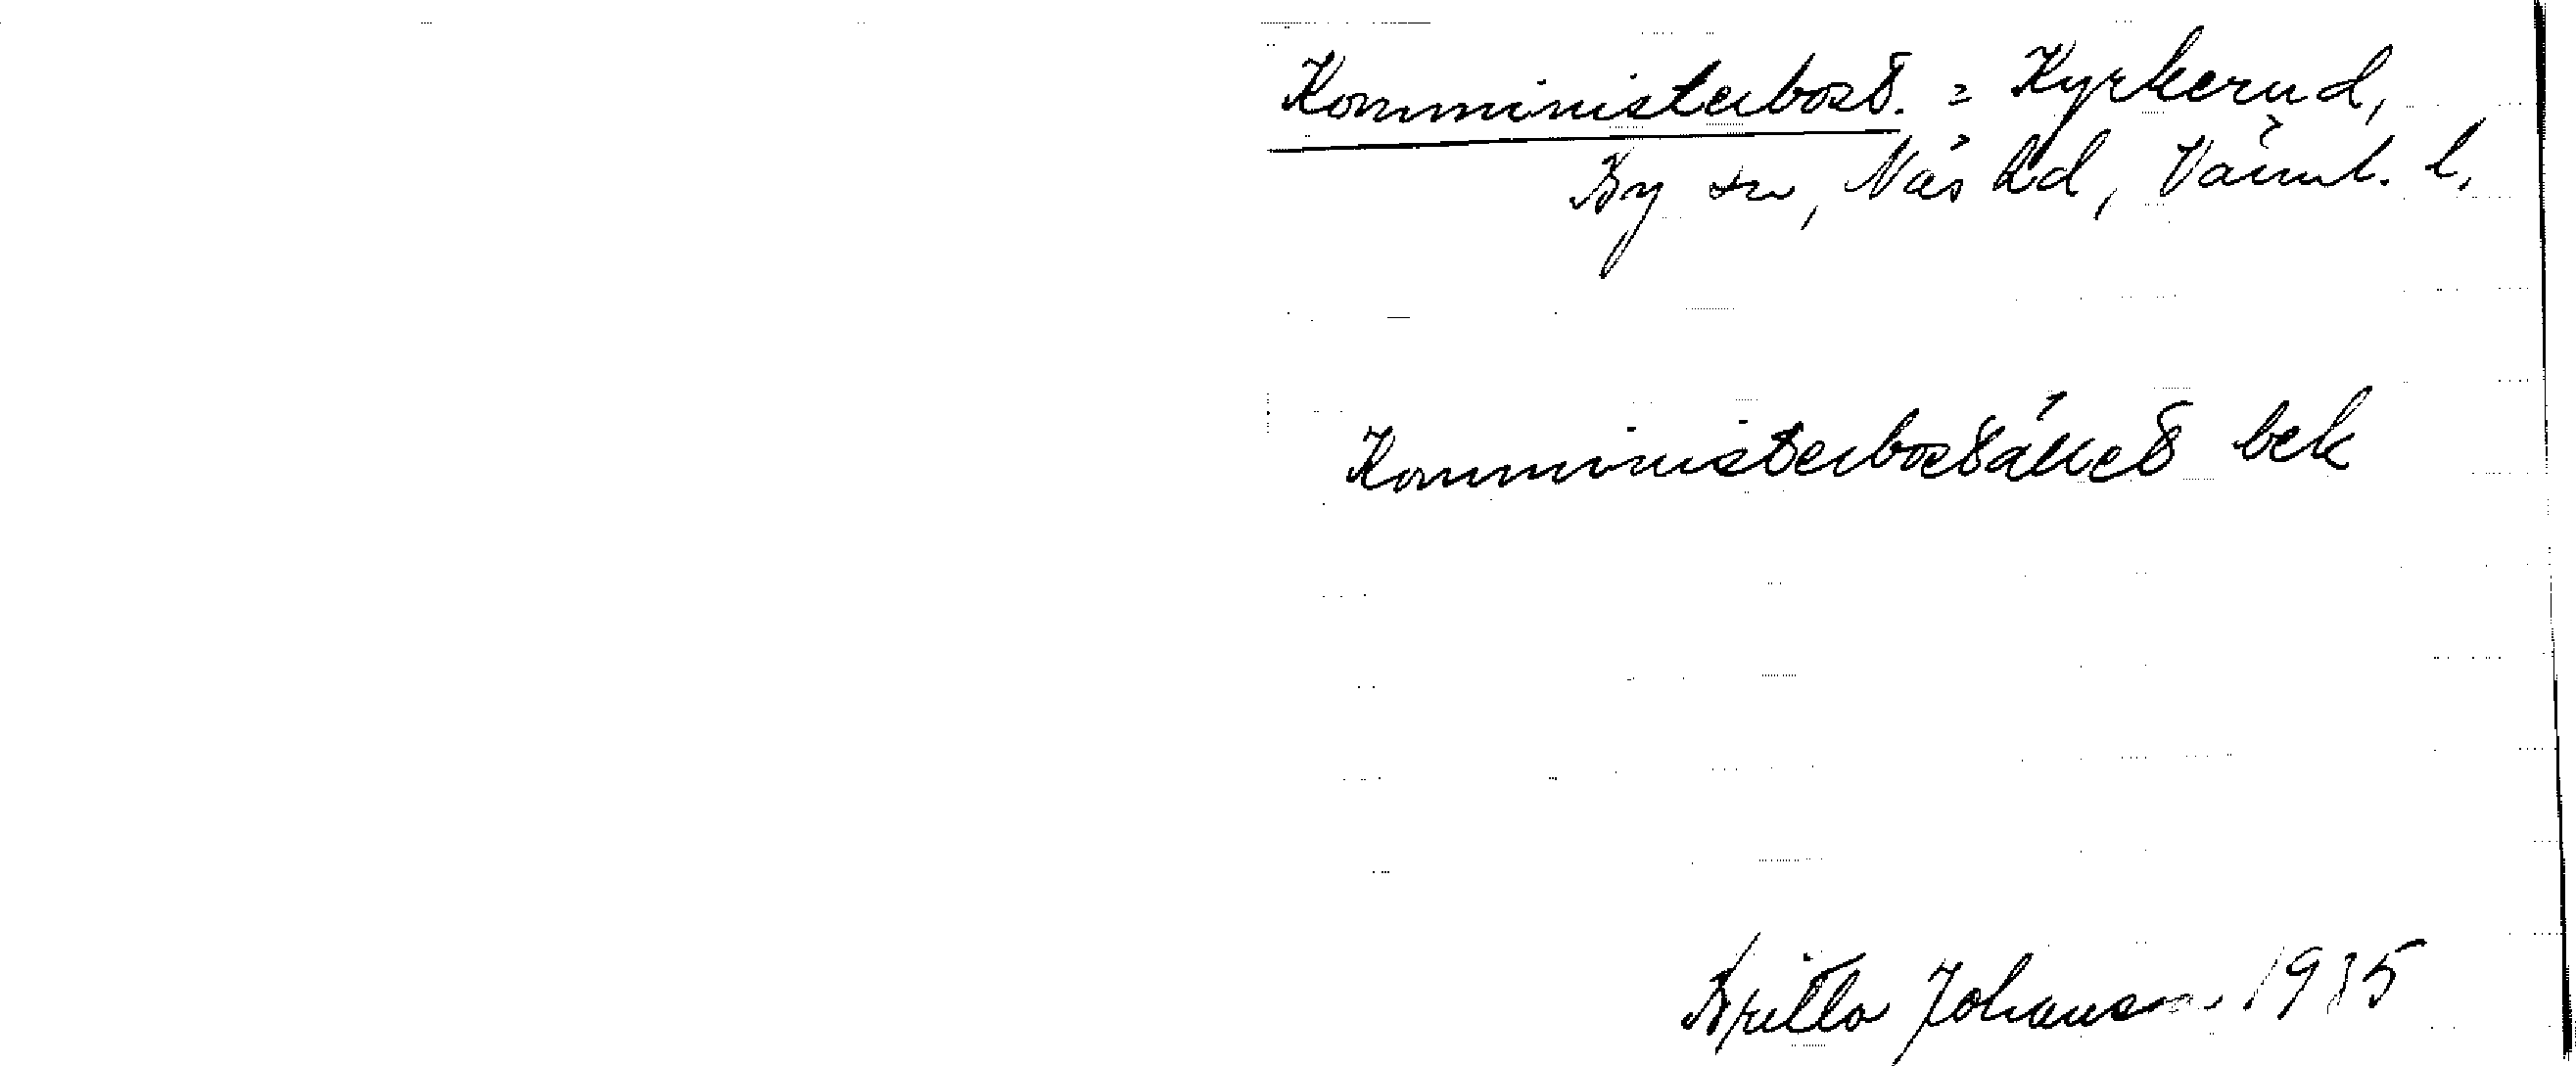 Komministerbost. = Kyrkerud,
By sn, Näs hd, Värml. l.
Komministerbostället bek
Britta Johansson 1935